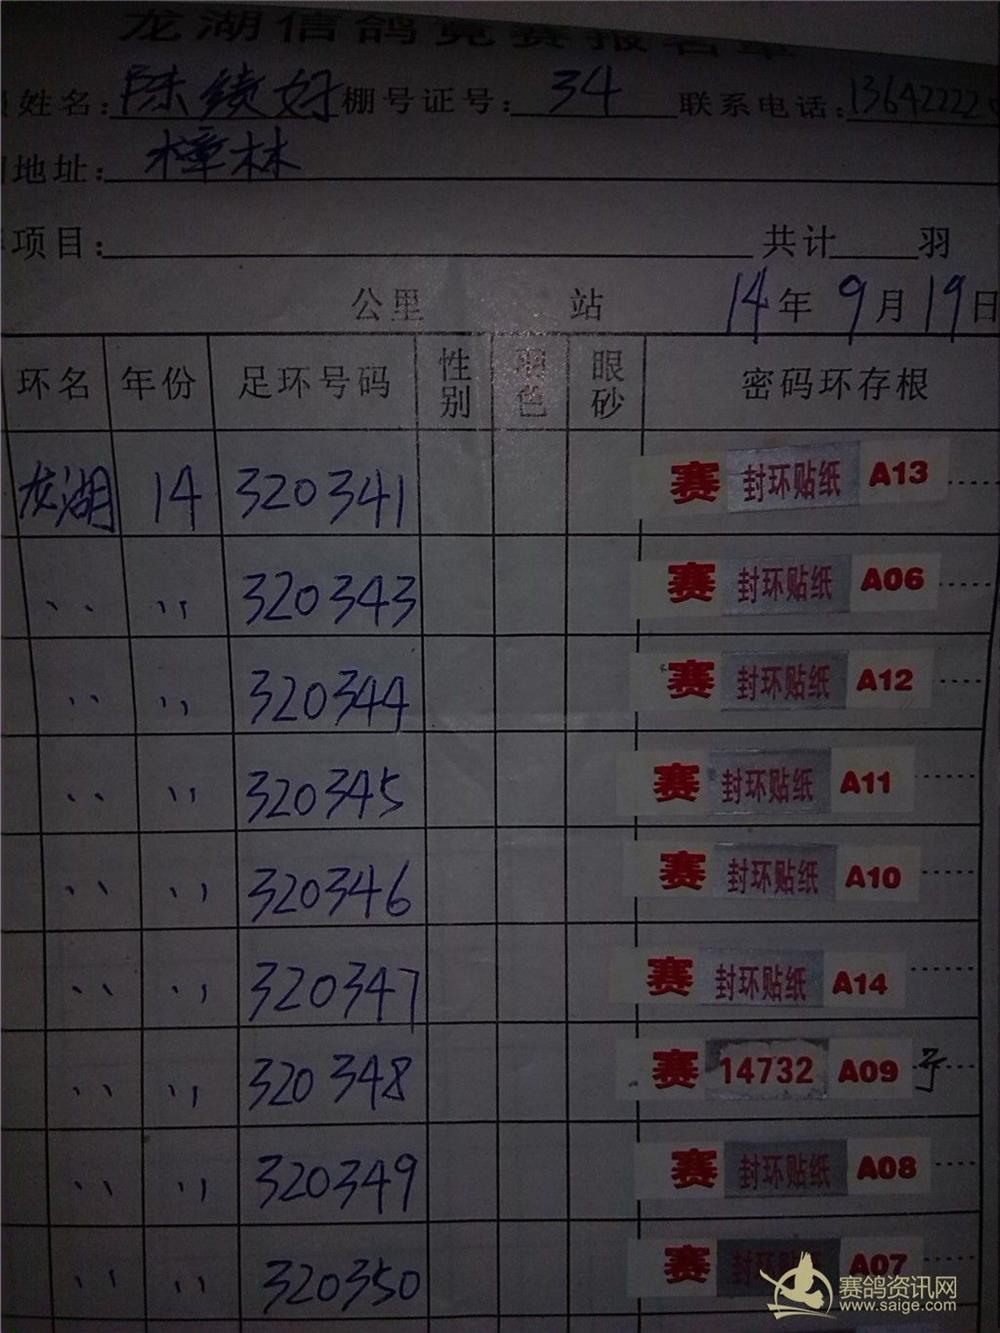 龙湖信鸽竞赛报名单
姓名: 陈绩好 棚号证号: 34 联系电话: 13642222
地址: 樟林
项目: 共计 羽
公里 站 14年9月19日
环名 年份 足环号码 性别 羽色 眼砂 密码环存根
龙湖 14 320341 赛 封环贴纸 A13
、、 、、 320343 赛 封环贴纸 A06
、、 、、 320344 赛 封环贴纸 A12
、、 、、 320345 赛 封环贴纸 A11
、、 、、 320346 赛 封环贴纸 A10
、、 、、 320347 赛 封环贴纸 A14
、、 、、 320348 赛 14732 A09
、、 、、 320349 赛 封环贴纸 A08
、、 、、 320350 赛 封环贴纸 A07
赛鸽资讯网
www.saige.com